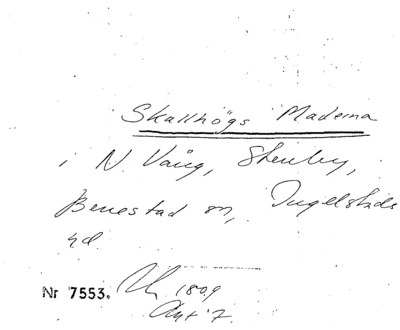 Skallhögs Maderna
i N. Vång, Stenby,
Benestad sn, Ingelstads
hd
Nr 7553. 1809
Akt 7